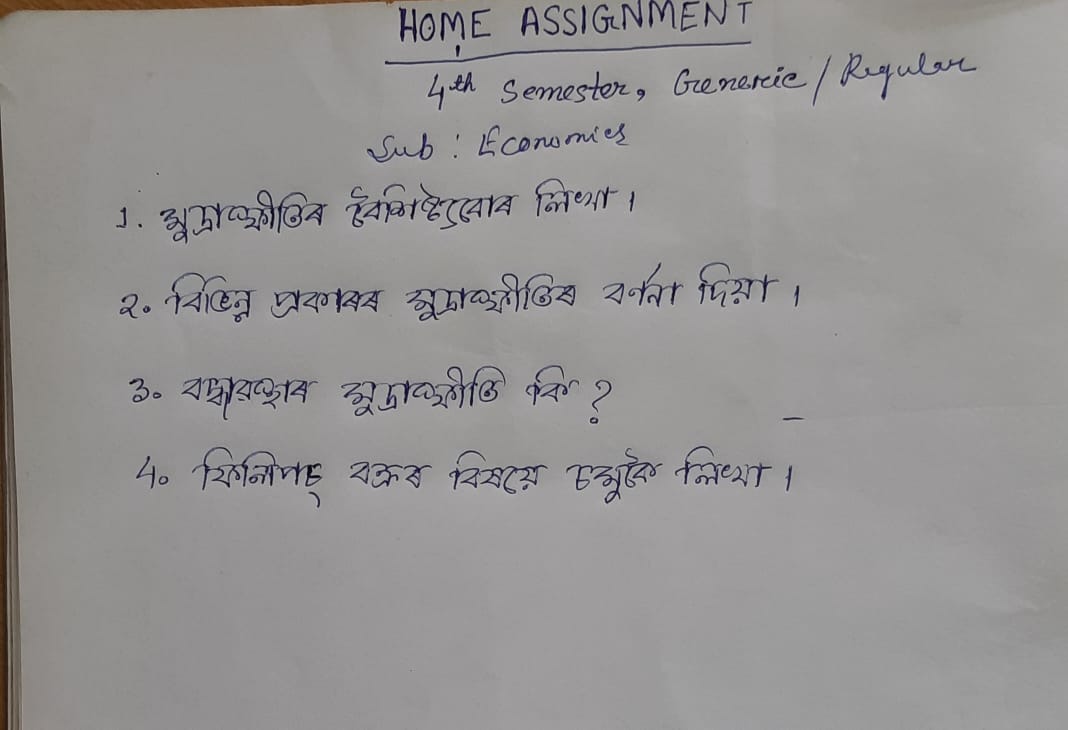 HOME ASSIGNMENT
4th Semester, Generic / Regular
Sub : Economics
১. মুদ্ৰাস্ফীতিৰ বৈশিষ্ট্যবোৰ লিখা।
২. বিভিন্ন প্ৰকাৰৰ মুদ্ৰাস্ফীতিৰ বৰ্ণনা দিয়া।
৩. বদ্ধাৱস্থাৰ মুদ্ৰাস্ফীতি কি?
4. ফিলিপচ্ বক্ৰৰ বিষয়ে চমুকৈ লিখা।